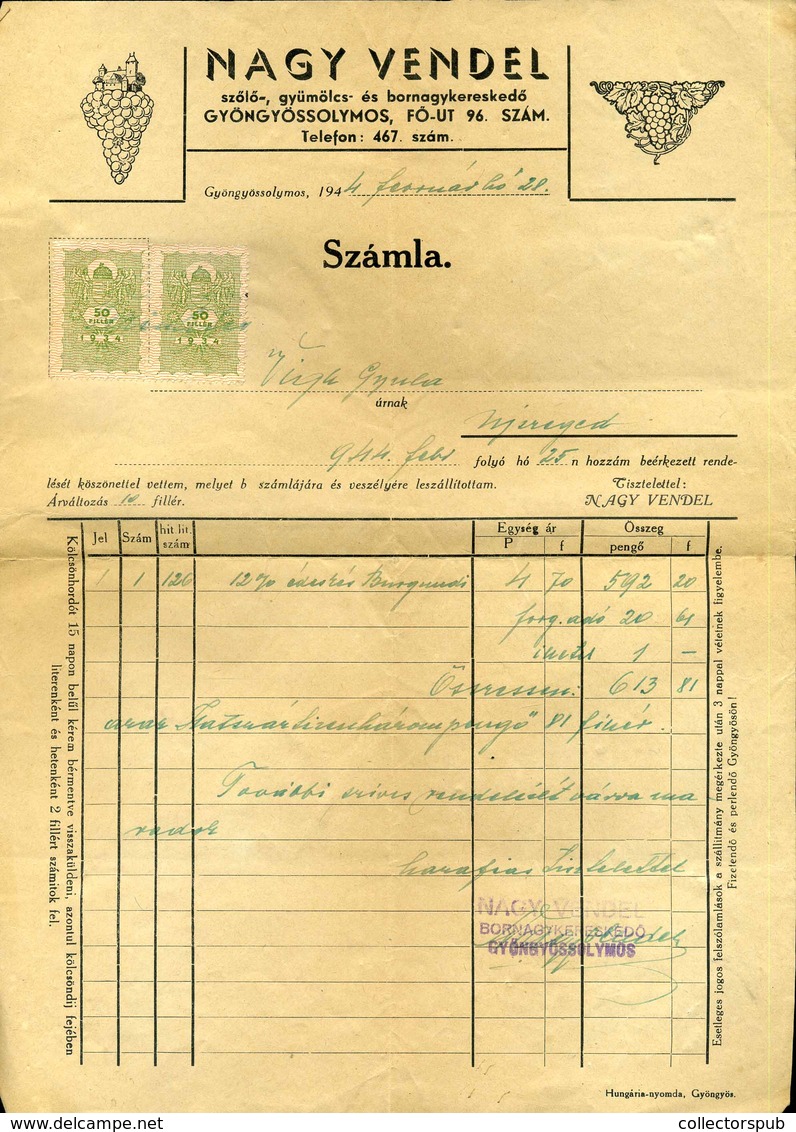 NAGY VENDEL
szőlő-, gyümölcs- és bornagykereskedő
GYÖNGYÖSSOLYMOS, FŐ-UT 96. SZÁM.
Telefon: 467. szám.
Gyöngyössolymos, 1944 február hó 28.
Számla.
50 FILLÉR 1934 50 FILLÉR 1934
Vigh Gyula
úrnak
Ujszeged
944. febr folyó hó 25 n hozzám beérkezett rende-
lését köszönettel vettem, melyet b számlájára és veszélyére leszállítottam. Tisztelettel:
Árváltozás 10 fillér. NAGY VENDEL
Jel Szám hit. lit. szám Egység ár P f Összeg pengő f
1 1 126 12% édeskés Burgundi 4 70 592 20
forg. adó 20 61
1 –
Összesen: 613 81
azaz "Hatszáztizenhárompengő" 81 fillér.
További szives rendelését várva ma
radok
hazafias Tisztelettel
NAGY VENDEL
BORNAGYKERESKEDŐ
GYÖNGYÖSSOLYMOS
Kölcsönhordót 15 napon belül kérem bérmentve visszaküldeni, azontul kölcsöndij fejében
literenként és hetenként 2 fillért számitok fel.
Esetleges jogos felszólamlások a szállitmány megérkezte után 3 nappal vétetnek figyelembe.
Fizetendő és perlendő Gyöngyösön!
Hungária-nyomda, Gyöngyös.
collectorspub